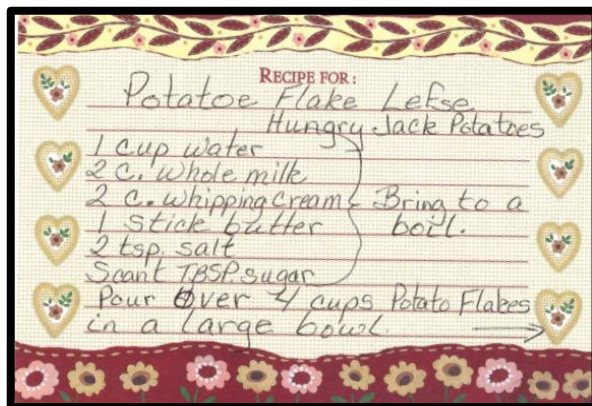 RECIPE FOR:
Potatoe Flake Lefse
Hungry Jack Potatoes
1 cup water
2 c. whole milk
2 c. whipping cream Bring to a
1 stick butter boil.
2 tsp. salt
Scant TBSP. sugar
Pour Over 4 cups Potato Flakes
in a large bowl.